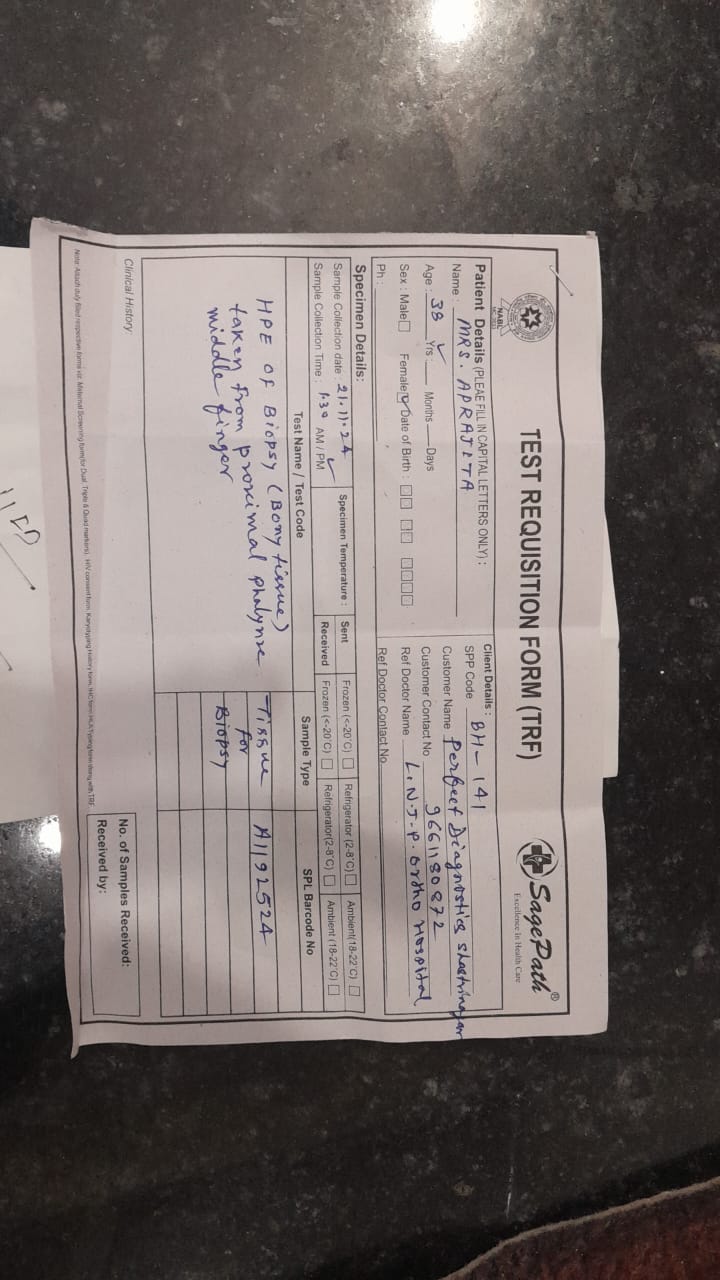 TEST REQUISITION FORM (TRF)
NABL
SagePath®
Excellence In Health Care
Patient Details (PLEAE FILL IN CAPITAL LETTERS ONLY) :
Name : MRS. APRAJITA
Age : 38 Yrs : Months Days
Sex : Male Female Date of Birth :
Ph :
Client Details :
SPP Code BH-141
Customer Name Perfect Diagnostics Shastrinagar
Customer Contact No 9661180872
Ref Doctor Name L.N.J.P. Ortho Hospital
Ref Doctor Contact No
Specimen Details:
Sample Collection date : 21.11.24
Sample Collection Time : 1.30 AM / PM
Specimen Temperature :
Sent Frozen (<-20°C) Refrigerator (2-8°C) Ambient(18-22°C)
Received Frozen (<-20°C) Refrigerator(2-8°C) Ambient (18-22°C)
Test Name / Test Code
Sample Type
SPL Barcode No
HPE OF Biopsy (Bony tissue)
taken from proximal phalynx
middle finger
Tissue
for
Biopsy
A1192524
Clinical History:
No. of Samples Received:
Received by:
Note: Attach duly filled respective forms viz. Maternal Screening form(for Dual, Triple & Quad markers), HIV consent form, Karyotyping History form, IHC form HLA Typing form along with TRF